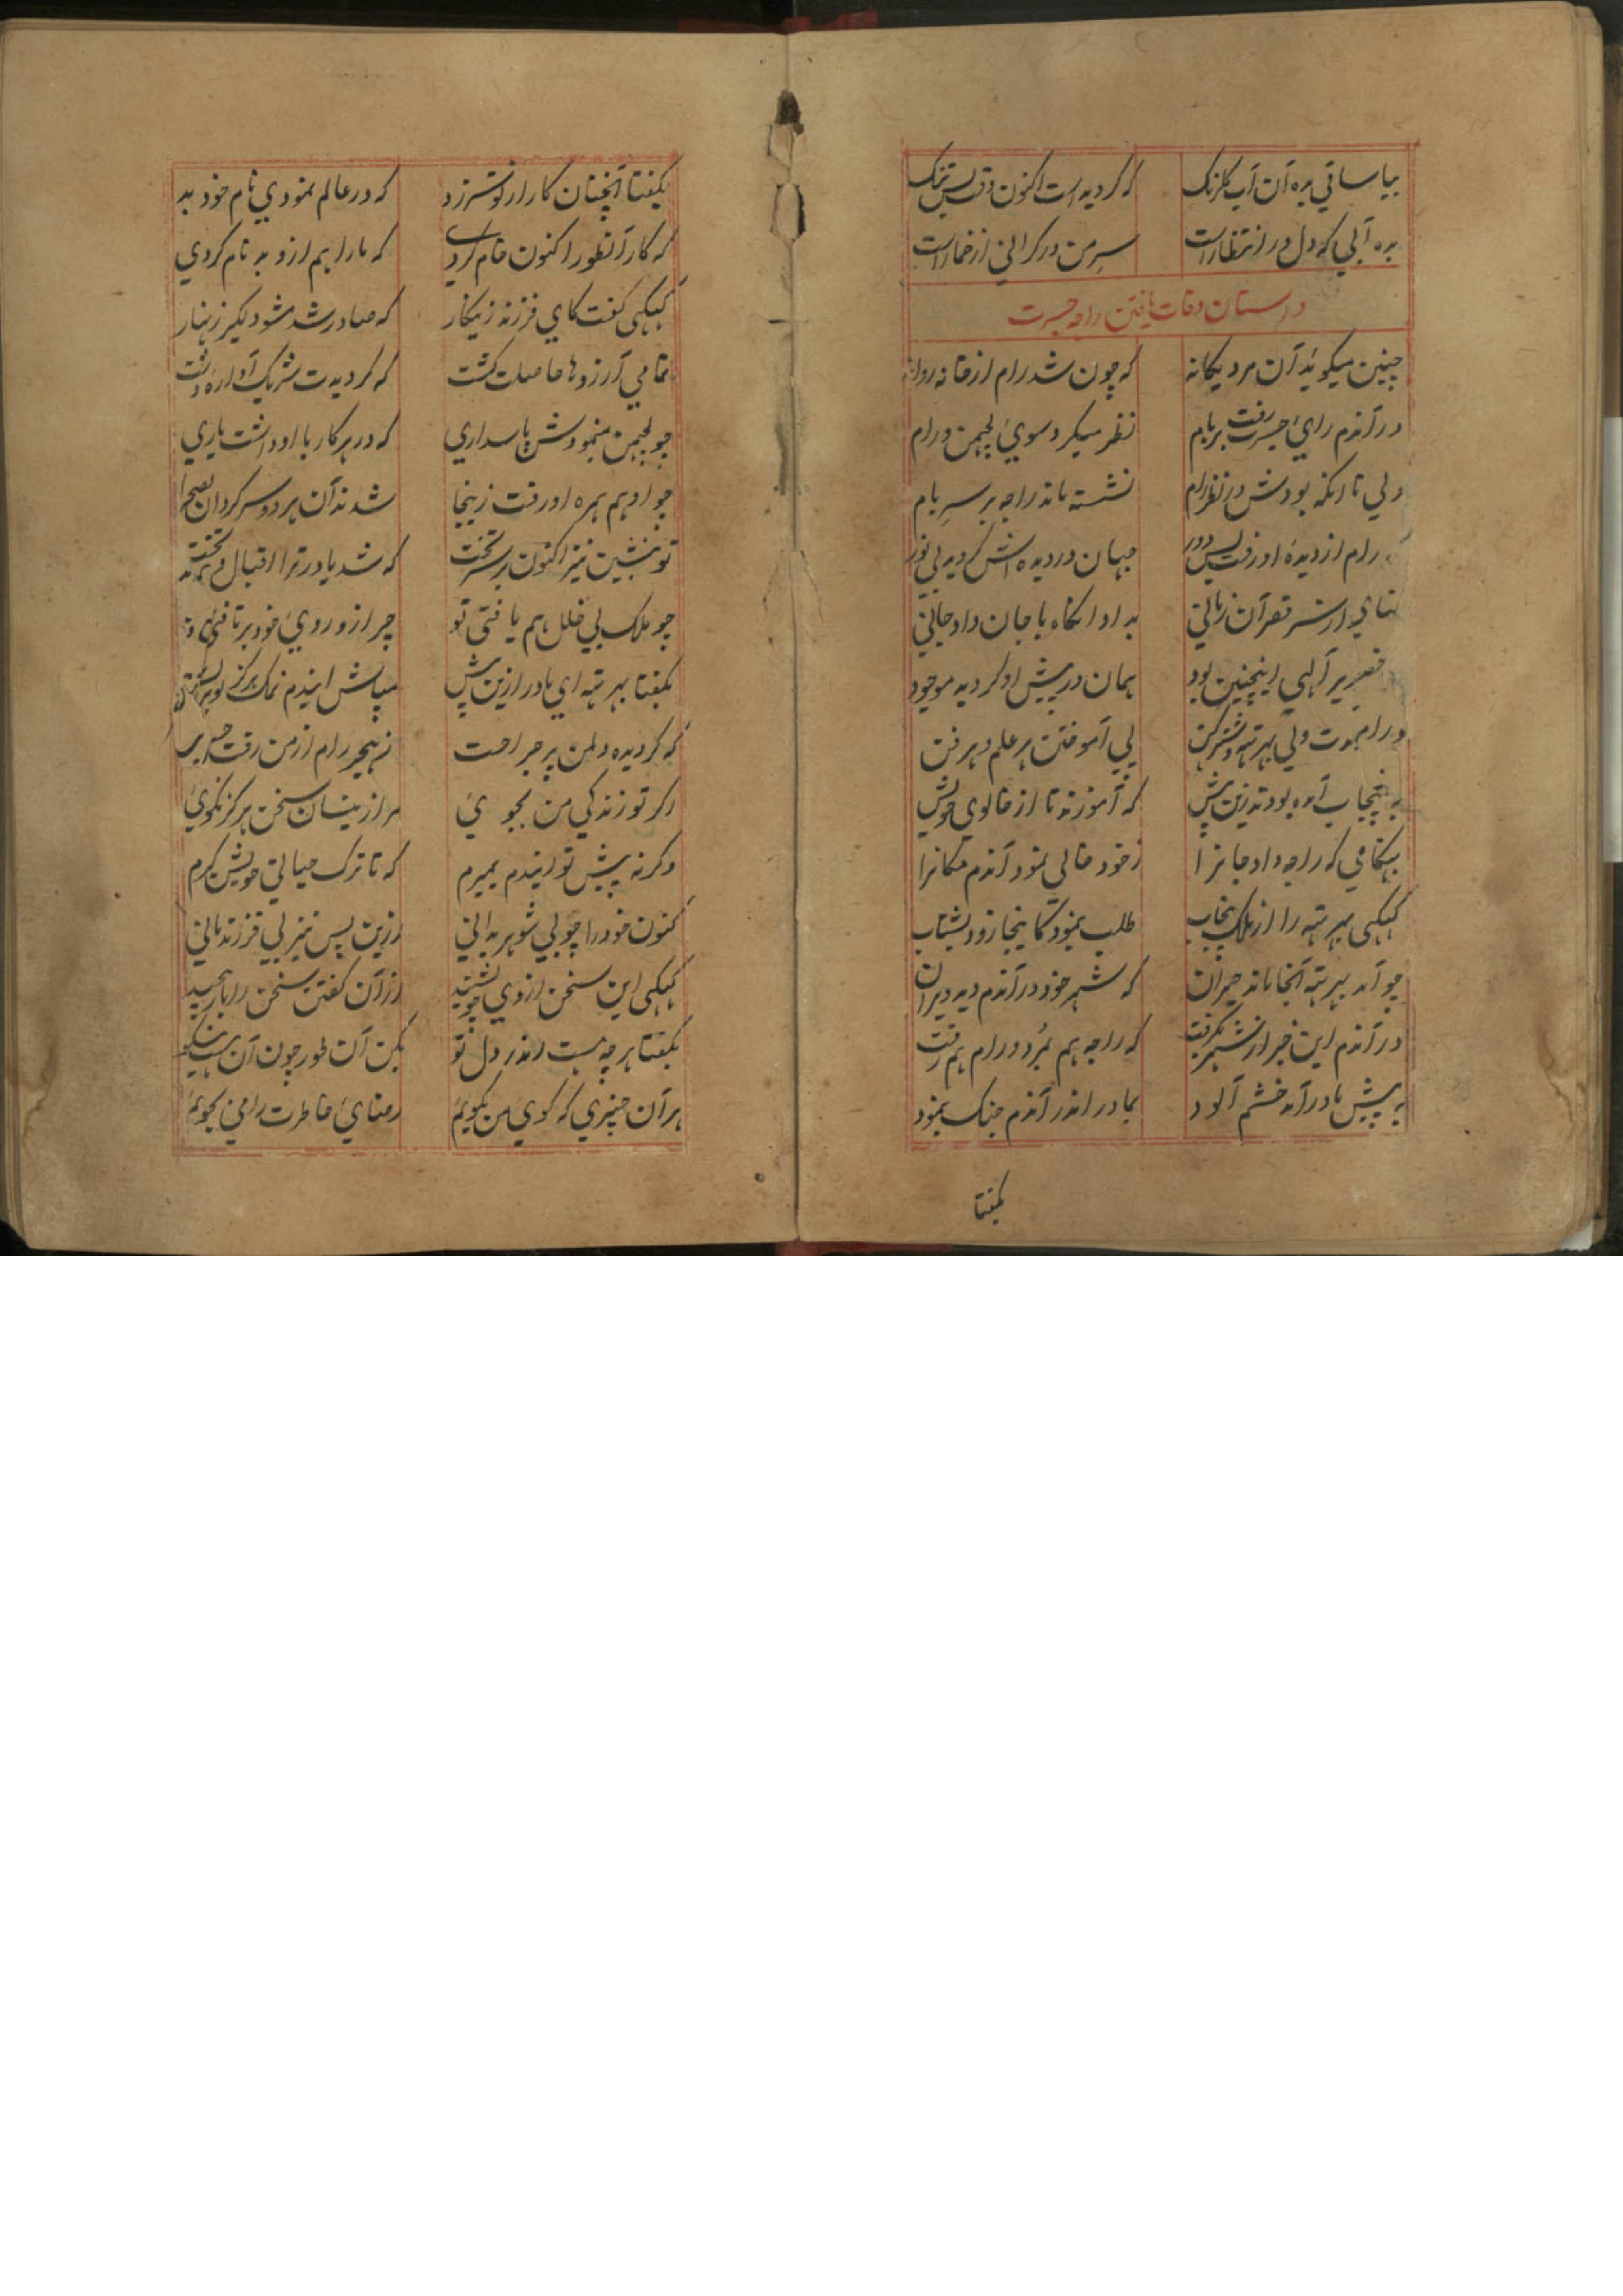 بیا ساقی بده آن آب گلرنگ که گردیده است اکنون وقت بس تنگ
بده آبی که دل در انتظار است سر من در گرانی از خمار است
داستان وفات یافتن راجه جسرت
چنین میگوید آن مرد یگانه که چون شد رام از خانه روانه
در آندم رای جسرت رفت بر بام نظر میکرد سوی لچمن و رام
ولی تا آنکه بودش در نظر رام نشسته ماند راجه بر سر بام
رام از دیدهٔ او رفت بس دور جهان در دیده اش گردید بی نور
بداد آنگاه با جان داد جانی
تقدیر الهی اینچنین بود همان در پیش او گردید موجود
پی آموختن هر علم و هر فن
به پنجاب آمده بودند زین پیش که آموزند تا از خالوی خویش
بهنگامی که راجه داد جانرا ز خود خالی نمود آندم مکانرا
کیکی بهرته را از ملک پنجاب طلب بنمود کاینجا زود بشتاب
چو آمد بهرته آنجا ماند حیران که شهر خود در آندم دید ویران
در آندم این خبر از شهر بگرفت که راجه هم بمرد و رام هم رفت
به پیش مادر آمد خشم آلود بمادر اندر آندم جنگ بنمود
بگفتا
بگفتا آنچنان کار از تو سر زد که در عالم نمودی نام خود بد
که کار آنطور اکنون خام کردی که ما را هم ازو بدنام کردی
کیکی گفت کای فرزند زینکار که صادر شد مشو دیگر زنهار
تمامی آرزوها حاصلت گشت که گردیدت شریک آواره دشت
چو لچمن مینمودش پاسداری که در هر کار با او داشت یاری
چو او هم همره او رفت زینجا شدند آن هر دو سرگردان بصحرا
تو بنشین نیز اکنون بر سر تخت که شد یاور ترا اقبال
چو ملک بی خلل هم یافتی تو چرا زو روی خود بر تافتی تو
بگفتا بهرته ای مادر ازین پیش مپاش ایندم نمک هرگز
که گردیده دلمن پر جراحت ز هجر رام از من رفت
اگر تو زندگی من بجوی مرا زینسان سخن هرگز نگوی
وگرنه پیش تو ایندم بمیرم که تا ترک حیاتی خویش گیرم
کنون خود را چو بی شوهر بدانی ازین پس نیز بی فرزند مانی
کیکی این سخن از وی چو بشنید از آن گفتن سخن را باز
بگفتا هر چه هست اندر دل تو بکن آن طور چون آن هست نیکو
هر آن چیزی که گوی من بگویم رضای خاطرت را می بجویم